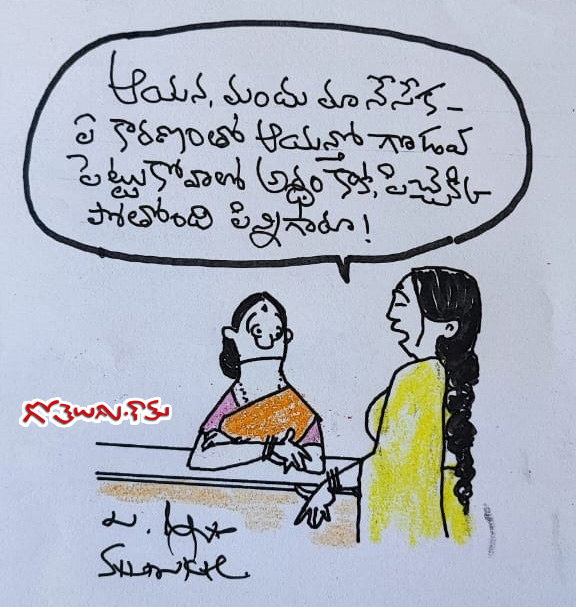 ఆయన, మందు మానేసేక-
ఏ కారణంతో ఆయన్తో గొడవ
పెట్టుకోవాలో అర్థం కాక, పిచ్చెక్కి
పోతోంది పిన్నిగారూ!
గోతెలుగు.కామ్